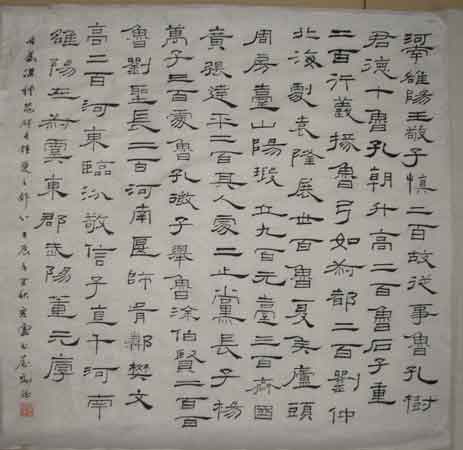 河南雒陽王敬子慎二百故從事魯孔樹
君德千魯孔朝升高二百魯石子重
二百行義掾魯弓如叔都二百劉仲
北海劇袁隆展世百魯夏侯廬頭
周房臺山陽瑕丘九百元臺三百齊國
廣張建平二百其人處士上黨長子楊
萬子三百魯孔徵子舉魯徐伯賢二百
魯劉聖長二百河南匽師胥鄰樊文
高二百河東臨汾敬信子直千河南
雒陽左叔虞東郡武陽董元厚